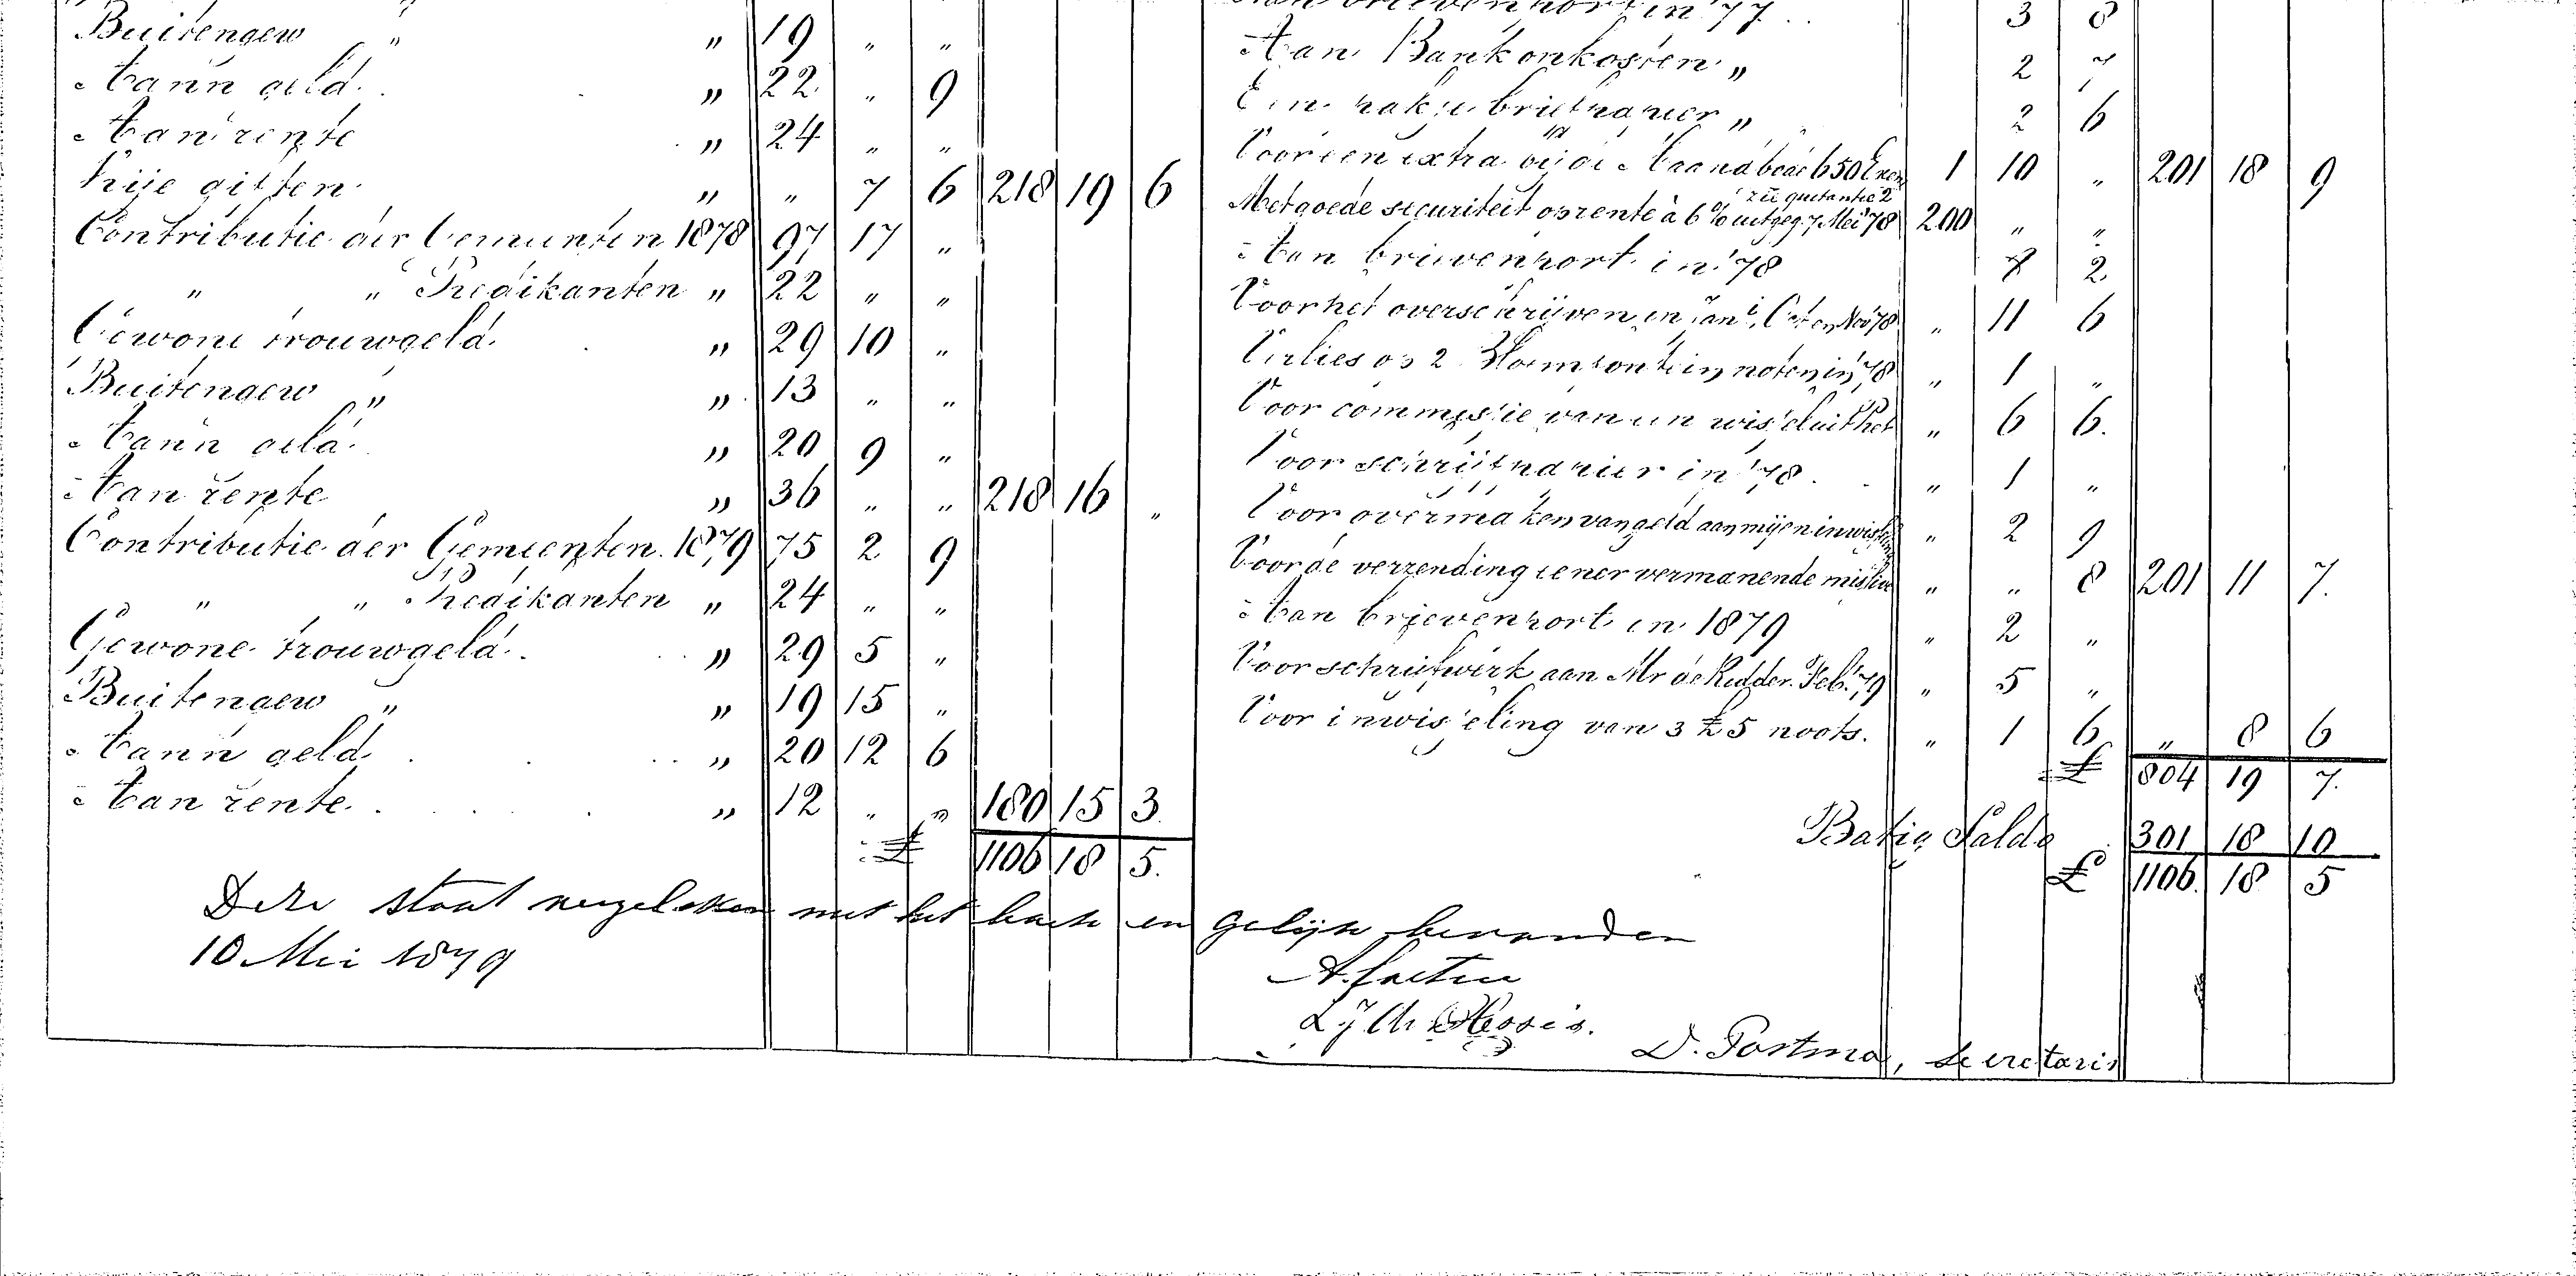 Buitengew " " 19 " "
Aann geld " 22 " 9
Aan rente " 24 " "
Vrije giften " " 7 6 218 19 6
Contributie der Gemeenten 1878 97 17 "
" " Predikanten " 22 " "
Gewone trouwgeld " 29 10 "
Buitengew " " 13 " "
Aann geld " 20 9 "
Aan rente " 36 " " 218 16 "
Contributie der Gemeenten 1879 75 2 9
" " Predikanten " 24 " "
Gewone trouwgeld " 29 5 "
Buitengew " " 19 15 "
Aann geld " 20 12 6
Aan rente " 12 " " 180 15 3
£ 1106 18 5.
Aan brievenport in '77 3 8
Aan Bankonkosten " 2 7
Een pakje briefpapier " 2 6
Voor een extra bijde Maandbode 650 Exem 1 10 " 201 18 9
zie quitantie 2
Met goede securiteit op rente à 6% uitgeg. 7 Mei '78 200 " "
Aan brievenport in '78 7 2
Voor het overschrijven in Oct en Nov 78 " 11 6
Verlies op 2 noten in '78 " 1 "
Voor commissie van een wissel uit het " 6 6.
Voor schrijfpapier in '78 " 1 "
Voor overmaken van geld aan mij en " 2 9
Voor de verzending eener vermanende missive " " 8 201 11 7.
Aan brievenport in 1879 " 2 "
Voor schrijfwerk aan Mr de Ridder Feb. '79 " 5 "
Voor inwisseling van 3 £5 noots. " 1 6 " 8 6
£ 804 19 7.
Batig Saldo 301 18 10
£ 1106. 18 5
Deze staat vergeleken met het boek en gelijk bevonden
10 Mei 1879
D. Postma, Secretaris